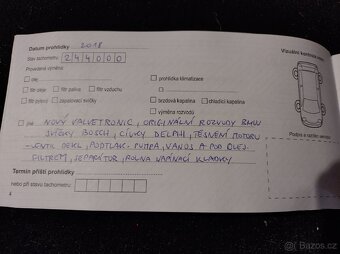 Datum prohlídky 2018
Vizuální kontrola
Stav tachometru 244000
Provedena výměna:
olej
prohlídka klimatizace
filtr oleje filtr paliva filtr vzduchu
filtr pylový zapalovací svíčky
brzdová kapalina chladicí kapalina
výměna rozvodů
NOVÝ VALVETRONIC, ORIGINÁLNÍ ROZVODY BMW
SVÍČKY BOSCH, CÍVKY DELPHI, TĚSNĚNÍ MOTORU
-VENTIL DEKL, PODTLAK-PUMPA, VANOS A POD OLEJ.
FILTREM, SEPARÁTOR, POLNA NAPÍNACÍ KLADKY
Podpis a razítko servisu
Termín příští prohlídky
nebo při stavu tachometru
Sbazoš.cz